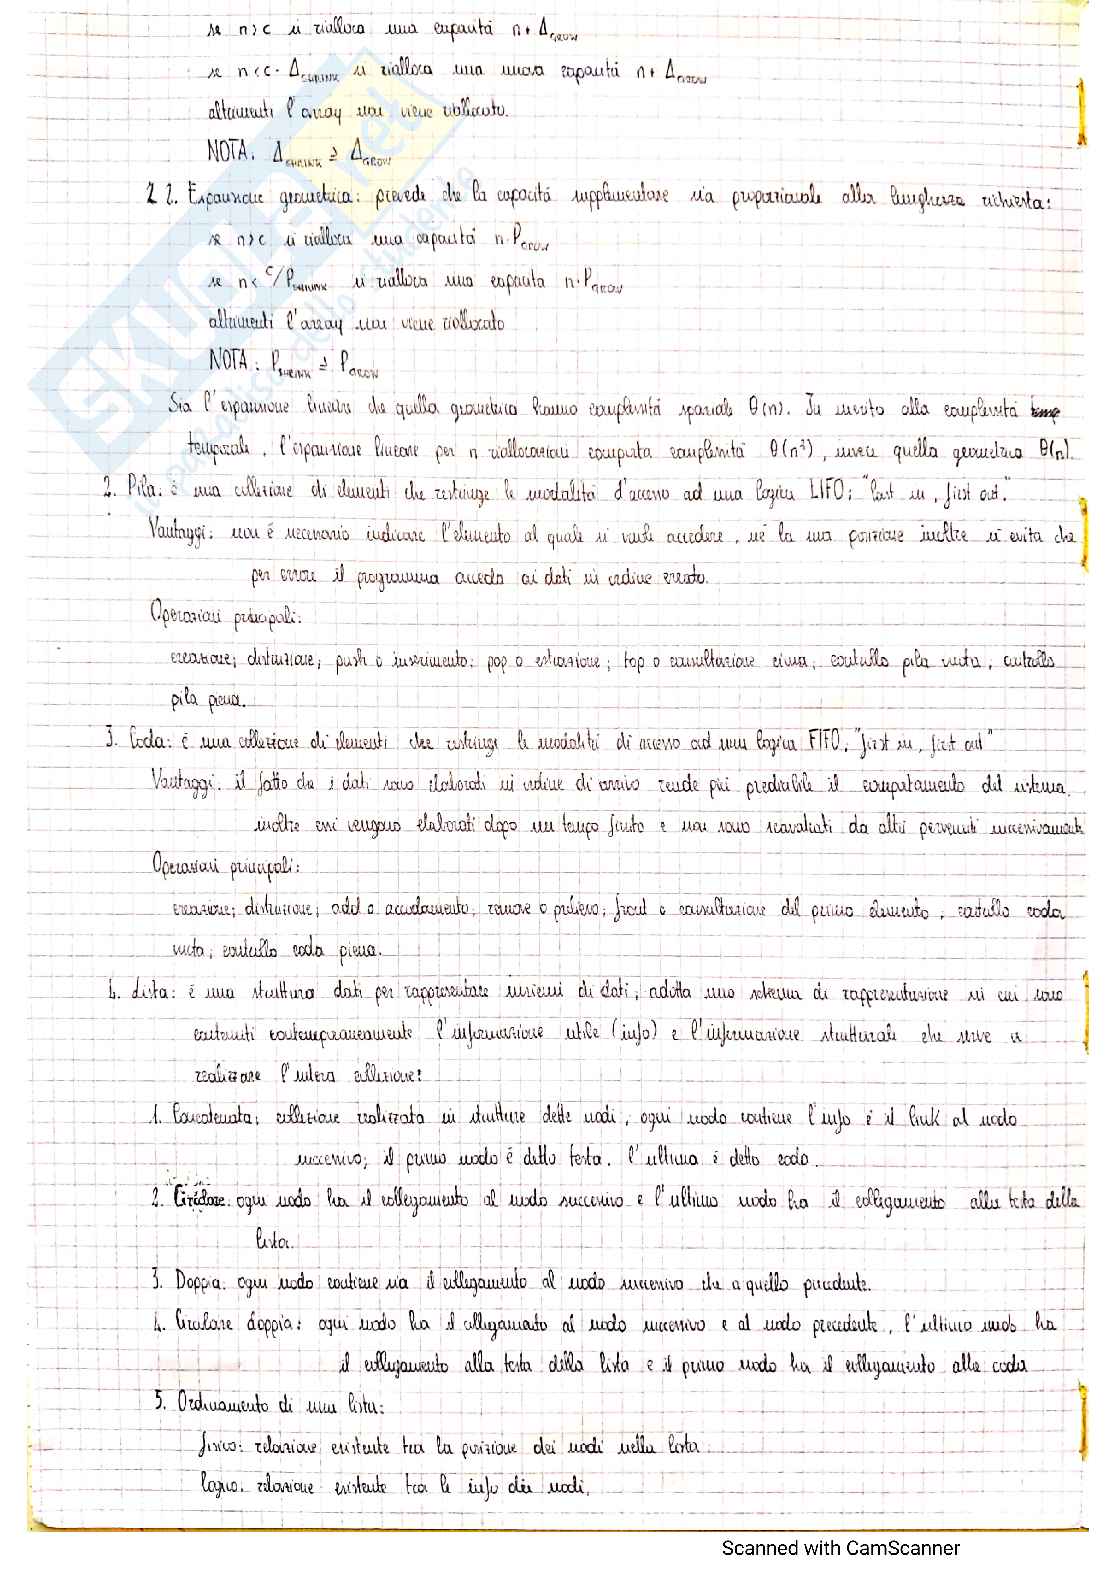 se n > c si rialloca una capacità n + Δ_GROW
se n < c - Δ_SHRINK si rialloca una nuova capacità n + Δ_GROW
altrimenti l'array non viene riallocato.
NOTA: Δ_SHRINK ≥ Δ_GROW
2 2. Espansione geometrica: prevede che la capacità supplementare sia proporzionale alla lunghezza richiesta:
se n > c si rialloca una capacità n · P_GROW
se n < c/P_SHRINK si rialloca una capacità n · P_GROW
altrimenti l'array non viene riallocato
NOTA: P_SHRINK ≥ P_GROW
Sia l'espansione lineare che quella geometrica hanno complessità spaziale Θ(n). In merito alla complessità
temporale, l'espansione lineare per n riallocazioni comporta complessità Θ(n²), invece quella geometrica Θ(n).
2. Pila: è una collezione di elementi che restringe le modalità d'accesso ad una logica LIFO; "last in, first out."
Vantaggi: non è necessario indicare l'elemento al quale si vuole accedere, né la sua posizione inoltre si evita che
per errore il programma acceda ai dati in ordine errato.
Operazioni principali:
creazione; distruzione; push o inserimento; pop o estrazione; top o consultazione cima; controllo pila vuota, controllo
pila piena.
3. Coda: è una collezione di elementi che restringe le modalità di accesso ad una logica FIFO, "first in, first out"
Vantaggi: il fatto che i dati sono elaborati in ordine di arrivo rende più predicibile il comportamento del sistema.
inoltre essi vengono elaborati dopo un tempo finito e non sono scavalcati da altri pervenuti successivamente
Operazioni principali:
creazione; distruzione; add o accodamento; remove o prelievo; front o consultazione del primo elemento, controllo coda
vuota; controllo coda piena.
4. Lista: è una struttura dati per rappresentare insiemi di dati, adotta uno schema di rappresentazione in cui sono
contenuti contemporaneamente l'informazione utile (info) e l'informazione strutturale che serve a
realizzare l'intera collezione:
1. Concatenata: collezione realizzata in strutture dette nodi, ogni nodo contiene l'info e il link al nodo
successivo; il primo nodo è detto testa. l'ultimo è detto coda.
2. Circolare: ogni nodo ha il collegamento al nodo successivo e l'ultimo nodo ha il collegamento alla testa della
lista.
3. Doppia: ogni nodo contiene sia il collegamento al nodo successivo che a quello precedente.
4. Circolare doppia: ogni nodo ha il collegamento al nodo successivo e al nodo precedente, l'ultimo nodo ha
il collegamento alla testa della lista e il primo nodo ha il collegamento alla coda
5. Ordinamento di una lista:
fisico: relazione esistente tra la posizione dei nodi nella lista.
logico: relazione esistente tra le info dei nodi.
Scanned with CamScanner